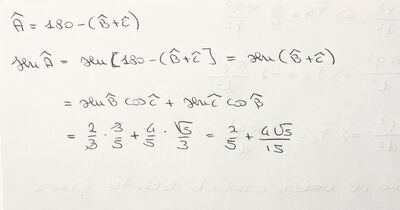 Â = 180 - (B̂ + Ĉ)
sen Â = sen [180 - (B̂ + Ĉ)] = sen (B̂ + Ĉ)
= sen B̂ cos Ĉ + sen Ĉ cos B̂
= 2/3 · 3/5 + 4/5 · √5/3 = 2/5 + 4√5/15